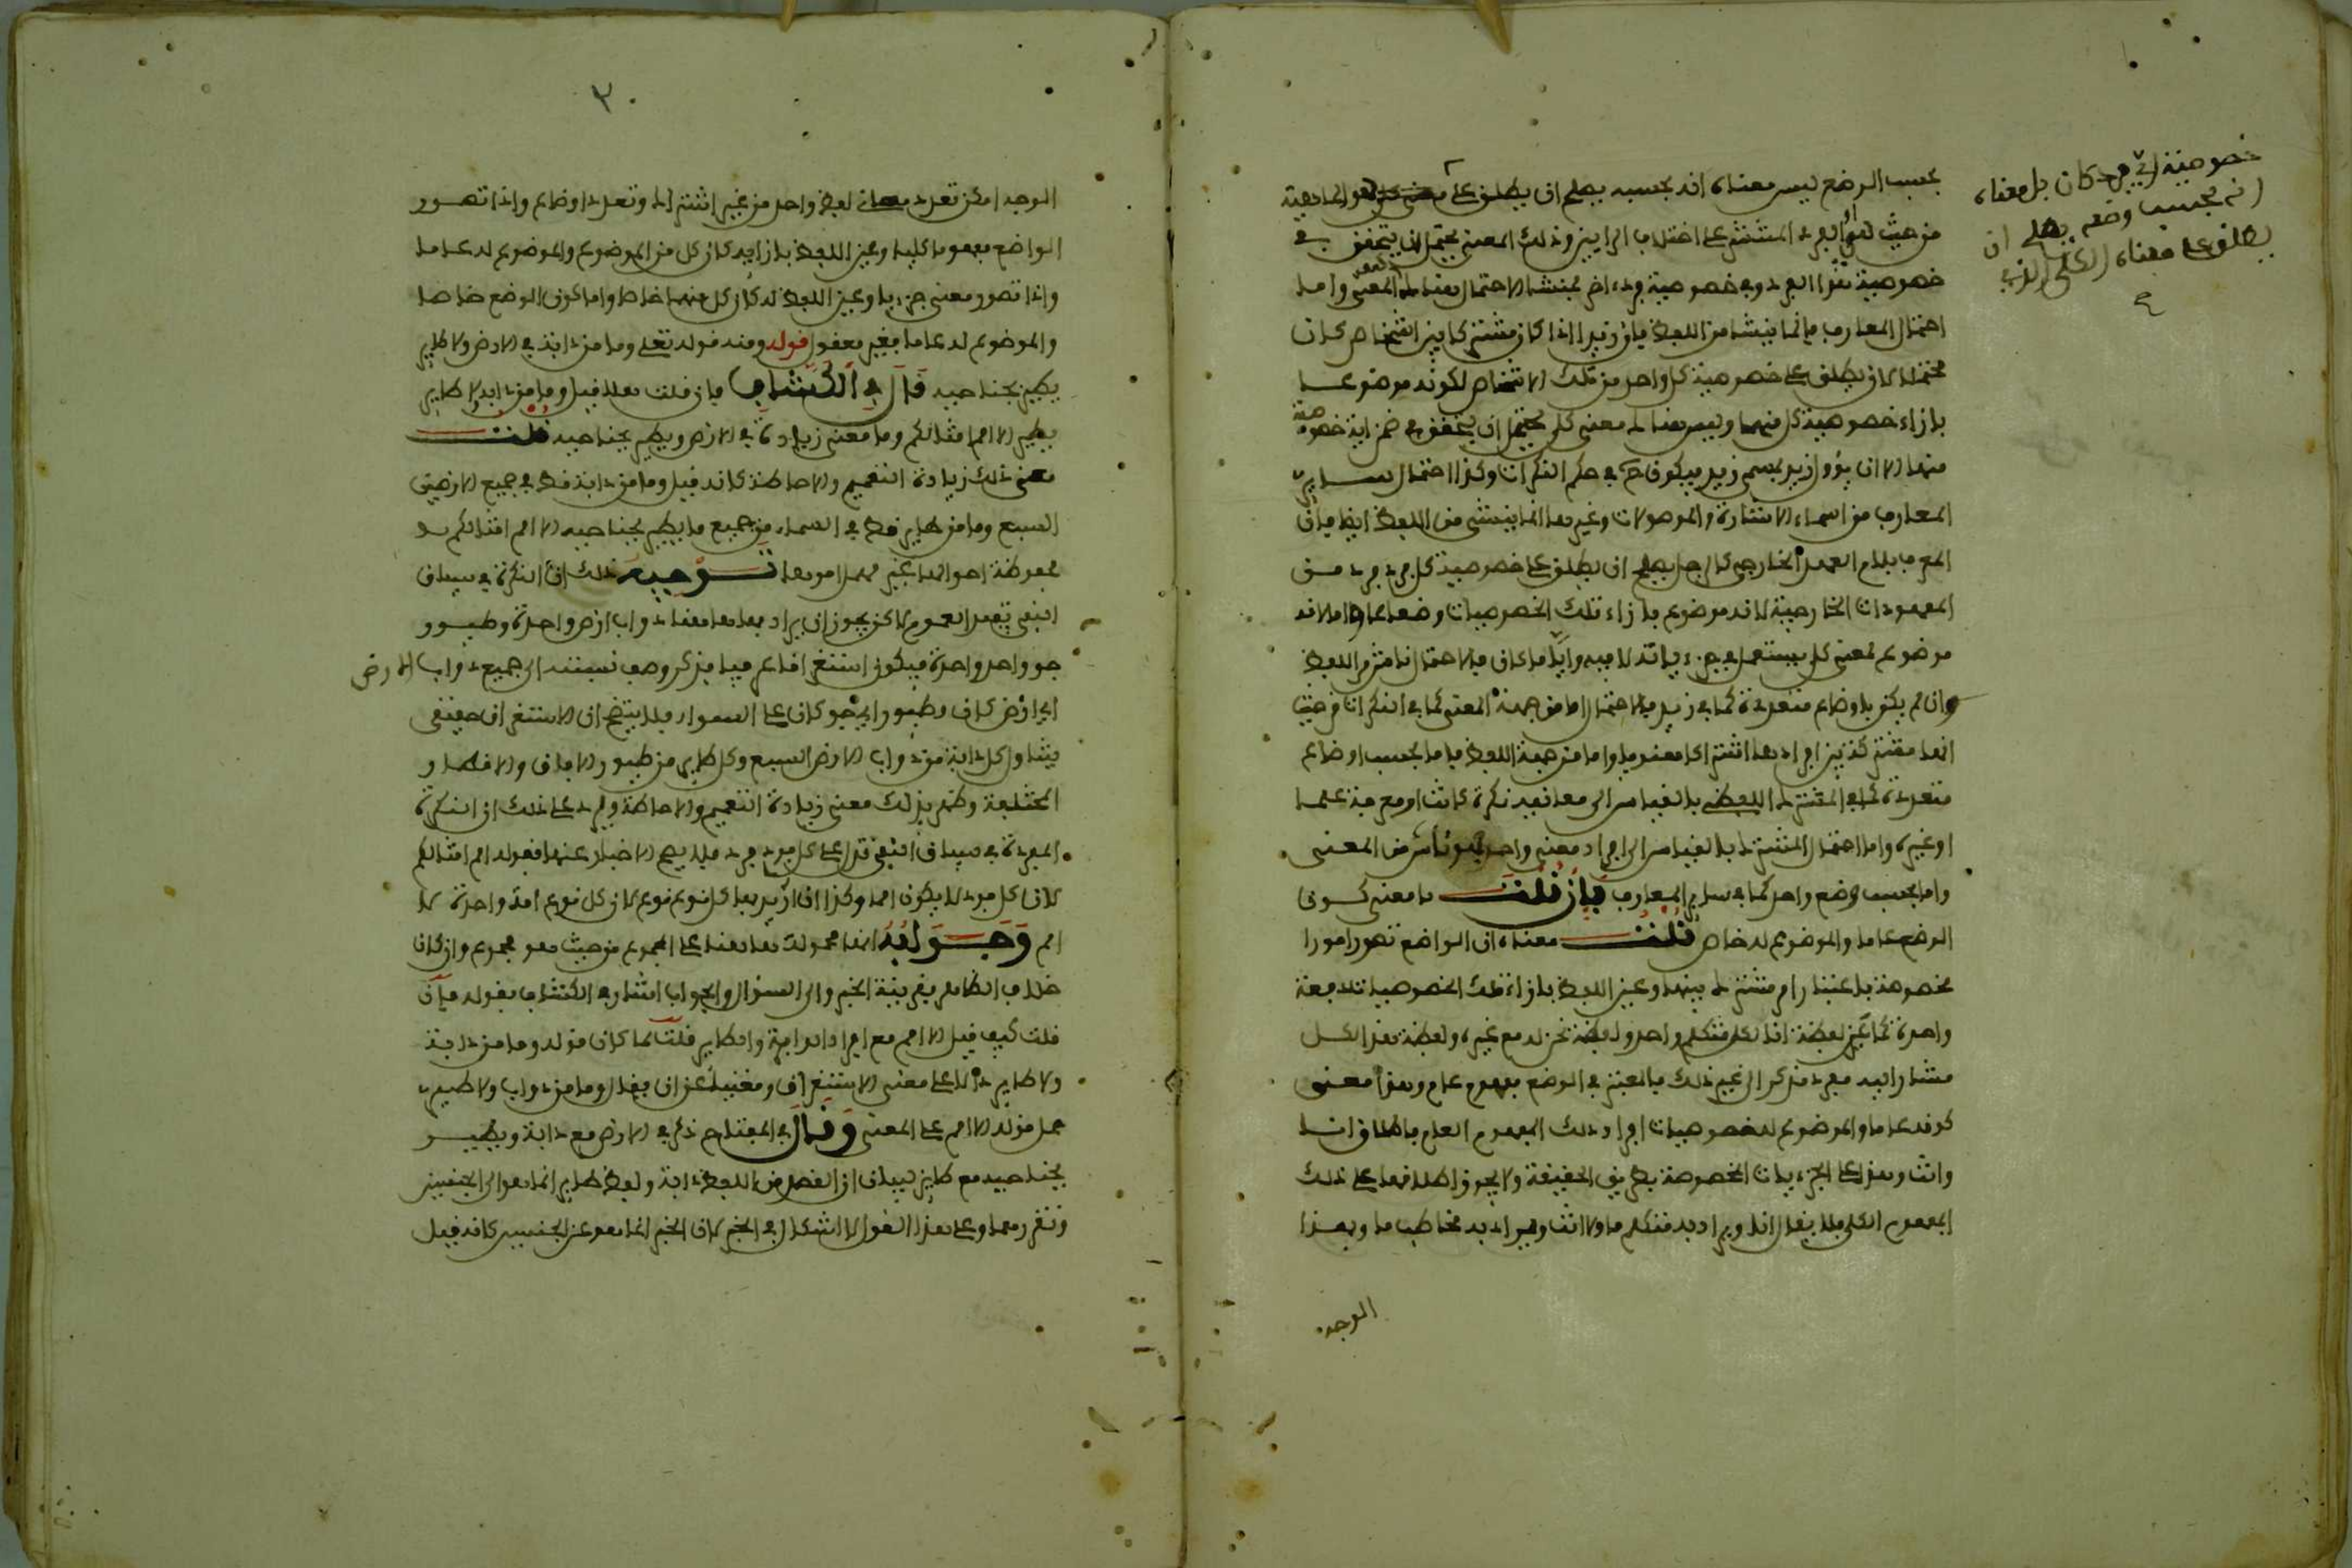 بحسب الوضع ليس معناه انه بحسبه يصلح ان يطلق على هو الماهية
من حيث هو او الفرد المنتشر على اختلاف الرايين وذلك المعنى يحتمل ان يتحقق في
خصوصية هذا الفرد وفي خصوصية فرد اخر فمنشا الاحتمال هناك هو المعنى واما
احتمال المعارف فانما ينشا من اللفظ فان زيدا اذا كان مشتركا بين اشخاص كان
محتملا لان يطلق على خصوصية كل واحد من تلك الاشخاص لكونه موضوعا
بازاء خصوصية كل منهما وليس هناك معنى كلي يحتمل ان يتحقق في ضمن اية خصوصية
منها الا ان يؤول زيد بمسمى زيد فيكون ح في حكم النكرات وكذا احتمال ساير
المعارف من اسماء الاشارة والموصولات وغيرها انما ينشئ من اللفظ ايضا فان
المعرف بلام العهد الخارجي كالرجل يصلح ان يطلق على خصوصية كل فرد فرد من
المعهودات الخارجية لانه موضوع بازاء تلك الخصوصيات وضعا عاما واما لانه
موضوع لمعنى كلي يستعمل في جزءياته لا فيه وايا ما كان فالاحتمال ناشئ من اللفظ
وان لم يكن باوضاع متعددة كما في زيد فالاحتمال اما من جهة المعنى كما في النكرات من حيث
انها مشتركة بين افرادها اشتراكا معنويا واما من جهة اللفظ فاما بحسب اوضاع
متعددة كما في المشترك اللفظي بالقياس الى معانيه نكرة كانت او معرفة علما
او غيره واما احتمال المشترك بالقياس الى افراد معنى واحد فهو ناش من المعنى
واما بحسب وضع واحد كما في ساير المعارف فان قلت ما معنى كون
الوضع عاما والموضوع له خاص قلت معناه ان الواضع تصور امورا
مخصوصة باعتبار امر مشترك بينها وعين اللفظ بازاء تلك الخصوصيات دفعة
واحدة كما عين لفظة انا لكل متكلم واحد ولفظة نحن له مع غيره ولفظة هذا لكل
مشار اليه مفرد مذكر الى غير ذلك فالمعتبر في الوضع مفهوم عام وهذا معنى
كونه عاما والموضوع له خصوصيات افراد ذلك المفهوم العام فاطلاق انا
وانت وهذا على الجزءيات المخصوصة بطريق الحقيقة ولا يجوز اطلاقها على ذلك
المفهوم الكلي فلا يقال انا ويراد به متكلم ما ولا انت ويراد به مخاطب ما وبهذا
الوجه
خصوصية اي فرد كان بل معناه
انه بحسب وضعه يصلح ان
يطلق على معناه الكلي الذي
٣٠
الوجه امكن تعدد معاني لفظ واحد من غير اشتراك وتعدد اوضاع واذا تصور
الواضع مفهوما كليا وعين اللفظ بازايه كان كل من الوضع والموضوع له عاما
واذا تصور معنى جزءيا وعين اللفظ له كان كل منهما خاصا واما كون الوضع خاصا
والموضوع له عاما فغير معقول قوله ومنه قوله تعلى وما من دابة في الارض ولا طاير
يطير بجناحيه قال في الكشاف فان قلت هلا قيل وما من دابة ولا طاير
يطير الا امم امثالكم وما معنى زيادة في الارض ويطير بجناحيه قلت
معنى ذلك زيادة التعميم والاحاطة كانه قيل وما من دابة قط في جميع الارضين
السبع وما من طاير قط في السماء من جميع ما يطير بجناحيه الا امم امثالكم
محفوظة احوالها غير مهمل امرها توجيه ذلك ان النكرة في سياق
النفي تفيد العموم لاكن يجوز ان يراد بها هاهنا دواب ارض واحدة وطيور
جو واحد واحدة فيكون استغراقا عرفيا فذكر وصف نسبته الى جميع دواب الارض
اي ارض كان وطيور اي جو كان على السواء فلا يتضح ان الاستغراق حقيقي
يتناول كل دابة من دواب الارض السبع وكل طاير من طيور الافاق والاقطار
المختلفة وظهر بذلك معنى زيادة التعميم والاحاطة ويرد على ذلك ان النكرة
المفردة في سياق النفي تدل على كل فرد فرد فلا يصح الاخبار عنها بقوله امم امثالكم
لان كل فرد لا يكون امما وكذا ان اريد بها كل نوع نوع لان كل نوع امة واحدة لا
امم وجوابه انها محمولة هاهنا على المجموع من حيث هو مجموع وان كان
خلاف الظاهر بقرينة الخبر والى السؤال والجواب اشار في الكشاف بقوله فان
قلت كيف قيل الا امم مع افراد الدابة والطاير قلت لما كان قوله وما من دابة
ولا طاير دالا على معنى الاستغراق ومغنيا عن ان يقال وما من دواب ولا طيور
حمل قوله الا امم على المعنى وقال في المفتاح ذكر في الارض مع دابة ويطير
بجناحيه مع طاير لبيان ان القصد من لفظ دابة ولفظ طاير انما هو الى الجنسين
وتقريرهما وعلى هذا القول لا اشكال في الخبر لان الخبر انما هو عن الجنسين كانه قيل